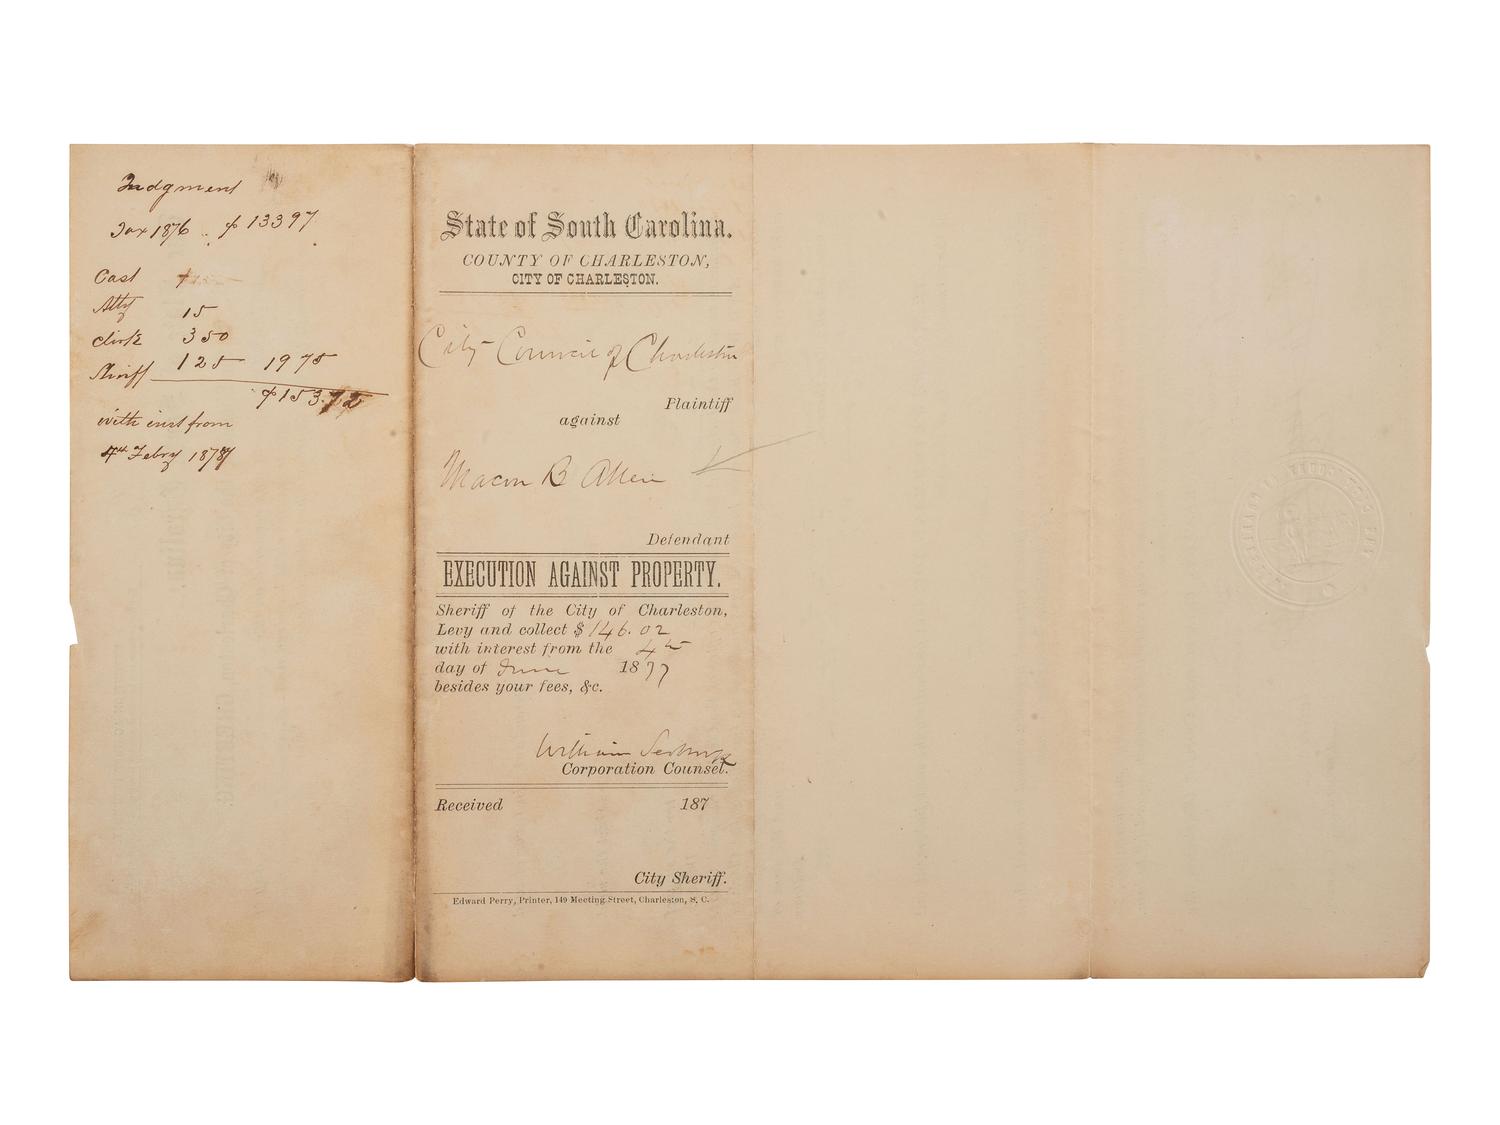 Judgment
Tax 1876 . $13397
Cost
Atty 15
Clerk 350
Sheriff 125 1975
$153.72
with inst from
4th Febry 1878
State of South Carolina.
COUNTY OF CHARLESTON,
CITY OF CHARLESTON.
City Council of Charleston
Plaintiff
against
Macon B Allen
Defendant
EXECUTION AGAINST PROPERTY.
Sheriff of the City of Charleston,
Levy and collect $ 146.02
with interest from the 4th
day of June 1877
besides your fees, &c.
William
Corporation Counsel.
Received 187
City Sheriff.
Edward Perry, Printer, 149 Meeting Street, Charleston, S. C.